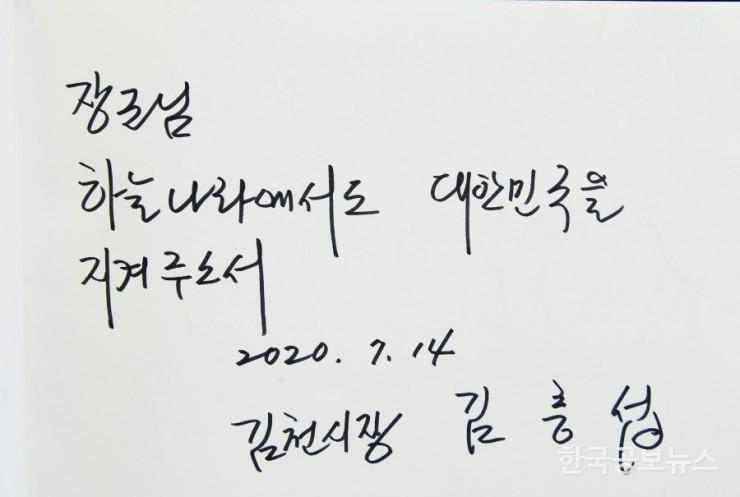 장군님
하늘나라에서도 대한민국을
지켜주소서
2020. 7. 14
김천시장 김충섭
한국공보뉴스